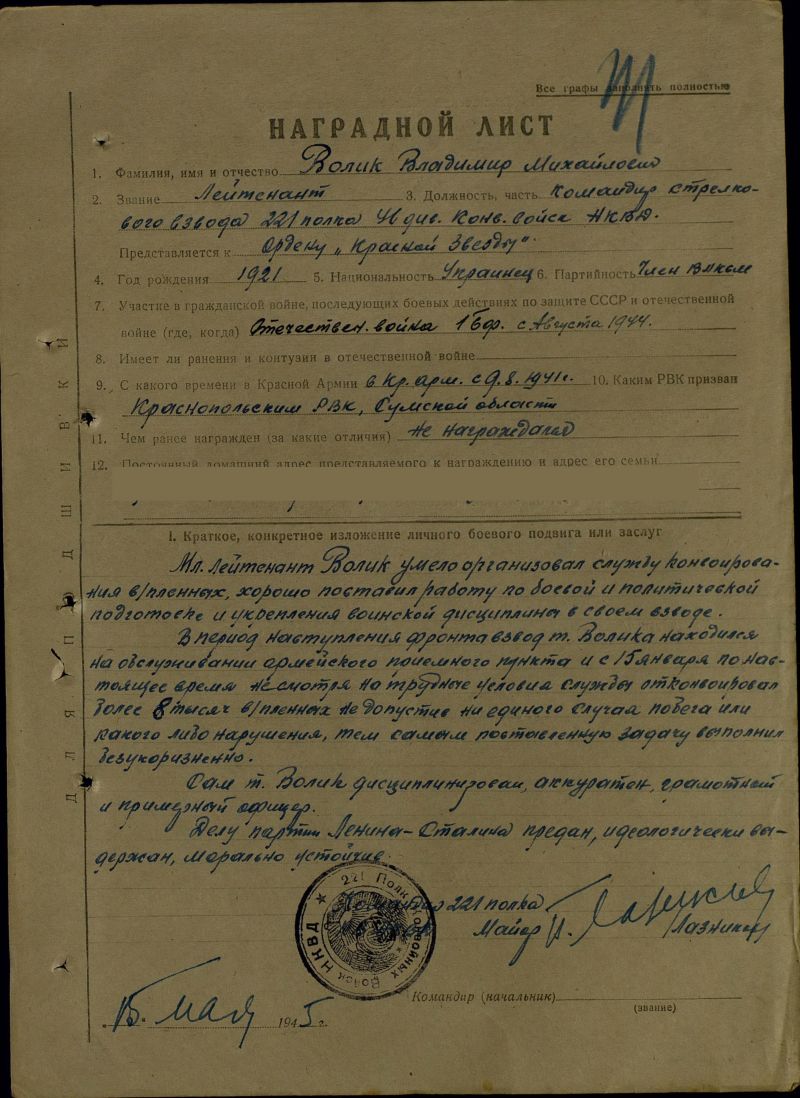 Все графы заполнять полностью
НАГРАДНОЙ ЛИСТ
1. Фамилия, имя и отчество Волик Владимир Михайлович
2. Звание Лейтенант 3. Должность, часть Командир стрелко-
вого взвода 221 полка 41 див. Конв. войск НКВД.
Представляется к Ордену „Красной Звезды".
4. Год рождения 1921 5. Национальность Украинец 6. Партийность Член ВЛКСМ
7. Участие в гражданской войне, последующих боевых действиях по защите СССР и отечественной
войне (где, когда) Отечествен. война 1 Бф. с Августа 1944.
8. Имеет ли ранения и контузии в отечественной войне
9. С какого времени в Красной Армии в Кр. арм. с 9.8.1941г. 10. Каким РВК призван
Краснопольским РВК, Сумской области
11. Чем ранее награжден (за какие отличия) Не награждался
12. Постоянный домашний адрес представляемого к награждению и адрес его семьи
I. Краткое, конкретное изложение личного боевого подвига или заслуг
Мл. Лейтенант Волик умело организовал службу конвоирова-
ния в/пленных, хорошо поставил работу по боевой и политической
подготовке и укрепления воинской дисциплины в своем взводе.
В период наступления фронта взвод т. Волика находился
на обслуживании армейского приемного пункта и с 15 января по нас-
тоящее время несмотря на трудные условия службы отконвоировал
более 8 тысяч в/пленных не допустив ни единого случая побега или
какого либо нарушения, тем самым поставленную задачу выполнил
безукоризненно.
Сам т. Волик дисциплинирован, аккуратен, грамотный
и примерный офицер.
Делу партии Ленина-Сталина предан, идеологически вы-
держан, морально устойчив.
Командир 221 полка
Майор
221 Полк Конвойных Войск НКВД
Командир (начальник)
(звание)
„15" мая 1945 г.
ДЛЯ ПОДШИВКИ